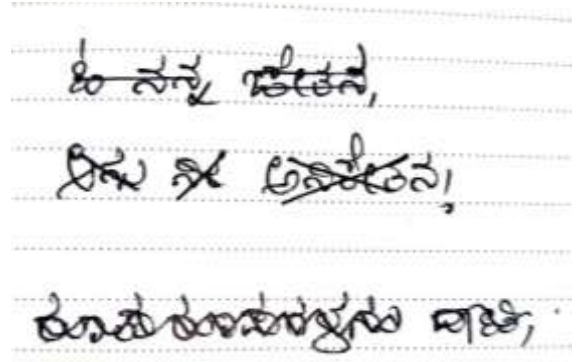 ಓ ನನ್ನ ಚೇತನ,
ಆಗು ನೀ ಅನಿಕೇತನ!
ರೂಪ ರೂಪಗಳನು ದಾಟಿ,